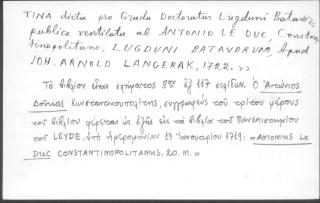 TINA dicta pro Gradu Doctoratus Lugduni Batavor.
publice ventilata ab ANTONIO LE DUC, Constan-
tinopolitano. LUGDUNI BATAVORUM, Apud
JOH. ARNOLD LANGERAK, 1722. >>
Τὸ βιβλίον εἶναι σχήματος 8ον ἐξ 117 σελίδων. Ὁ Ἀντώνιος
Δούκας Κωνσταντινουπολίτης, συγγραφεὺς τοῦ τρίτου μέρους
τοῦ βιβλίου φέρεται ὡς ἑξῆς εἰς τὰ βιβλία τοῦ Πανεπιστημίου
τοῦ LEYDE, ὑπὸ ἡμερομηνίαν 13 Ἰανουαρίου 1719: «ANTONIUS LE
DUC CONSTANTINOPOLITANUS, 20. M. »